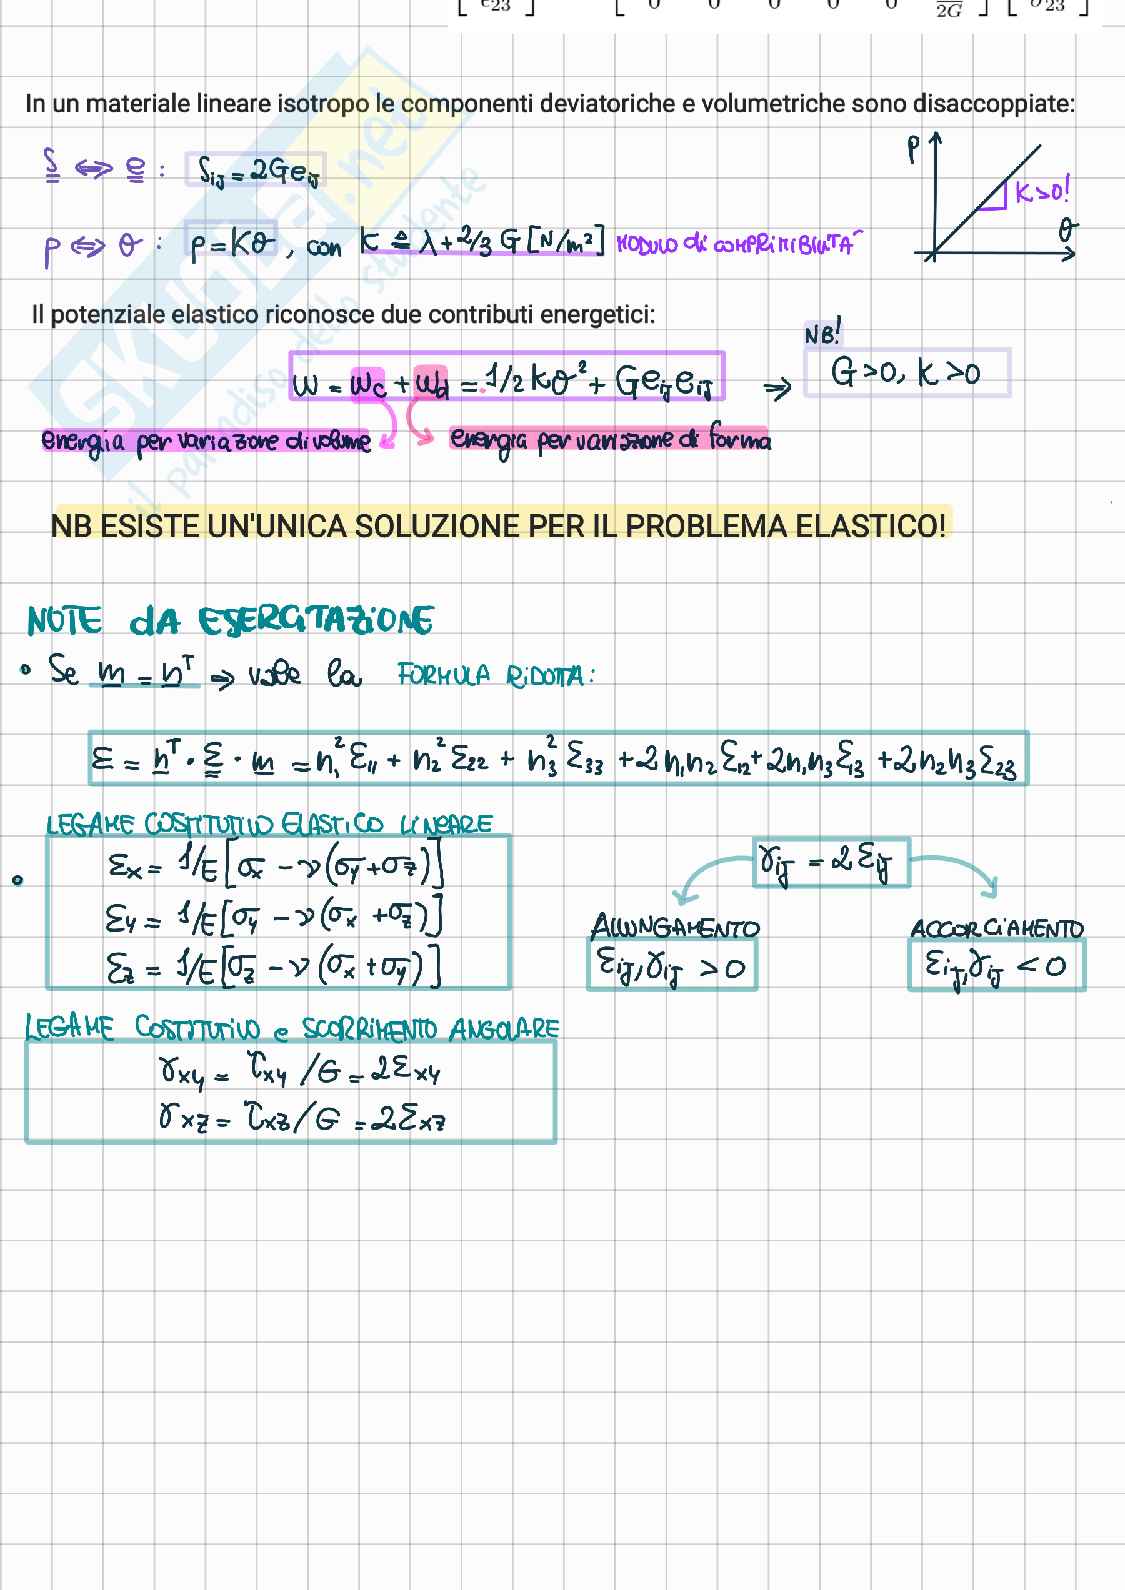 [ e₂₃ ] [ 0 0 0 0 0 1/2G ] [ σ₂₃ ]
In un materiale lineare isotropo le componenti deviatoriche e volumetriche sono disaccoppiate:
S ⇔ e : Sij = 2Geij
p ⇔ θ : p = Kθ , con K ≙ λ + 2/3 G [N/m²] MODULO di COMPRIMIBILITÀ
p
K>0!
θ
Il potenziale elastico riconosce due contributi energetici:
NB!
ω = ωc + ωd = 1/2 Kθ² + Geij eij ⇒ G>0, K>0
energia per variazione di volume energia per variazione di forma
NB ESISTE UN'UNICA SOLUZIONE PER IL PROBLEMA ELASTICO!
NOTE dA ESERCITAZIONE
• Se m = nᵀ ⇒ vale la FORMULA RIDOTTA:
ε = nᵀ · ε · m = n₁² ε₁₁ + n₂² ε₂₂ + n₃² ε₃₃ + 2n₁n₂ ε₁₂ + 2n₁n₃ ε₁₃ + 2n₂n₃ ε₂₃
LEGAME COSTITUTIVO ELASTICO LINEARE
• εx = 1/E [σx - ν(σy + σz)]
εy = 1/E [σy - ν(σx + σz)]
εz = 1/E [σz - ν(σx + σy)]
γij = 2εij
ALLUNGAMENTO ACCORCIAMENTO
εij, γij > 0 εij, γij < 0
LEGAME COSTITUTIVO e SCORRIMENTO ANGOLARE
γxy = τxy / G = 2εxy
γxz = τxz / G = 2εxz
SKUOLA.net
il paradiso dello studente